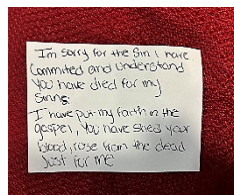 I'm sorry for the Sin I have
Committed and understand
You have died for my
Sinns
I have put my faith in the
gospel, You have shed your
blood, rose from the dead
Just for me